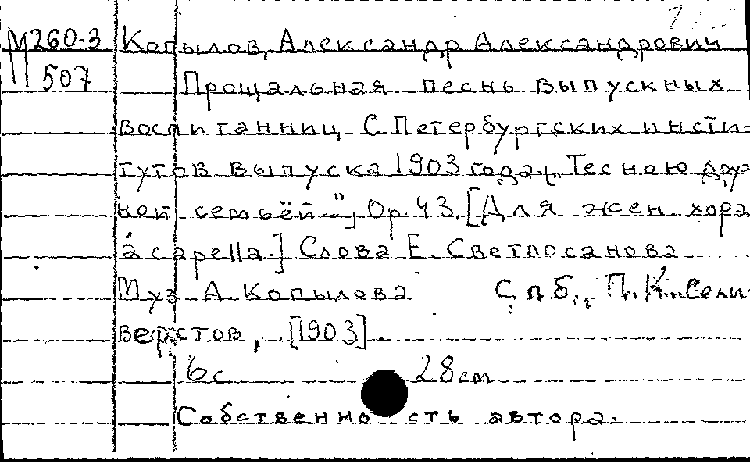 М260-3 Копылов, Александр Александрович
507 Прощальная песнь выпускных
воспитанниц С Петербургских инсти-
тутов выпуска 1903 года „Тесною дру
ной семьёй...", Ор. 43. [Для жен. хора
a capella.] Слова Е. Светлосанова
Муз А Копылова С.п.б., П.К. Сели-
верстов, [1903].
6 с 28 cm
Собственность автора.